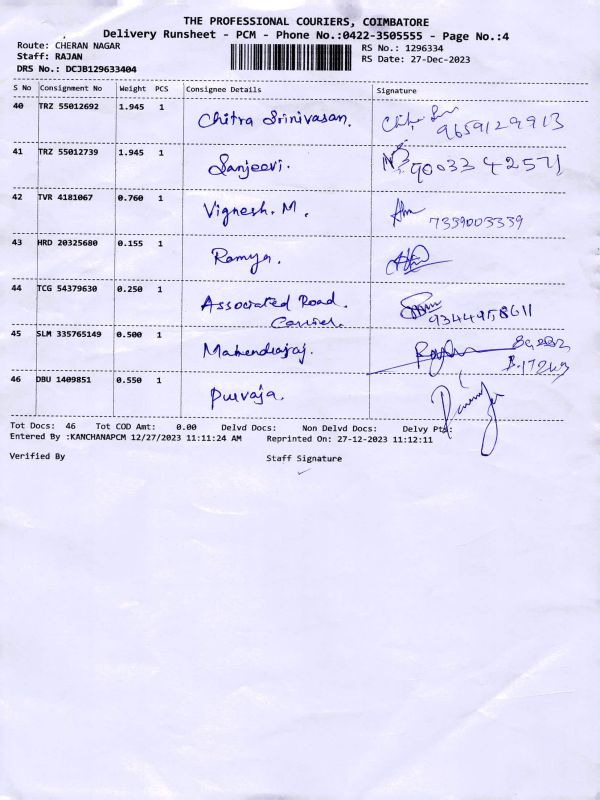 THE PROFESSIONAL COURIERS, COIMBATORE
Delivery Runsheet - PCM - Phone No.:0422-3505555 - Page No.:4
Route: CHERAN NAGAR
RS No.: 1296334
Staff: RAJAN
RS Date: 27-Dec-2023
DRS No.: DCJB129633404
S No Consignment No Weight PCS Consignee Details Signature
40 TRZ 55012692 1.945 1 Chitra Srinivasan. 9659129913
41 TRZ 55012739 1.945 1 Sanjeevi. 9003342571
42 TVR 4181067 0.760 1 Vignesh. M. 7339003339
43 HRD 20325680 0.155 1 Ramya.
44 TCG 54379630 0.250 1 Associated Road. 9344958611
Carrier.
45 SLM 335765149 0.500 1 Mahendraraj.
46 DBU 1409851 0.550 1 Purvaja.
Tot Docs: 46 Tot COD Amt: 0.00 Delvd Docs: Non Delvd Docs: Delvy Pts:
Entered By :KANCHANAPCM 12/27/2023 11:11:24 AM Reprinted On: 27-12-2023 11:12:11
Verified By Staff Signature